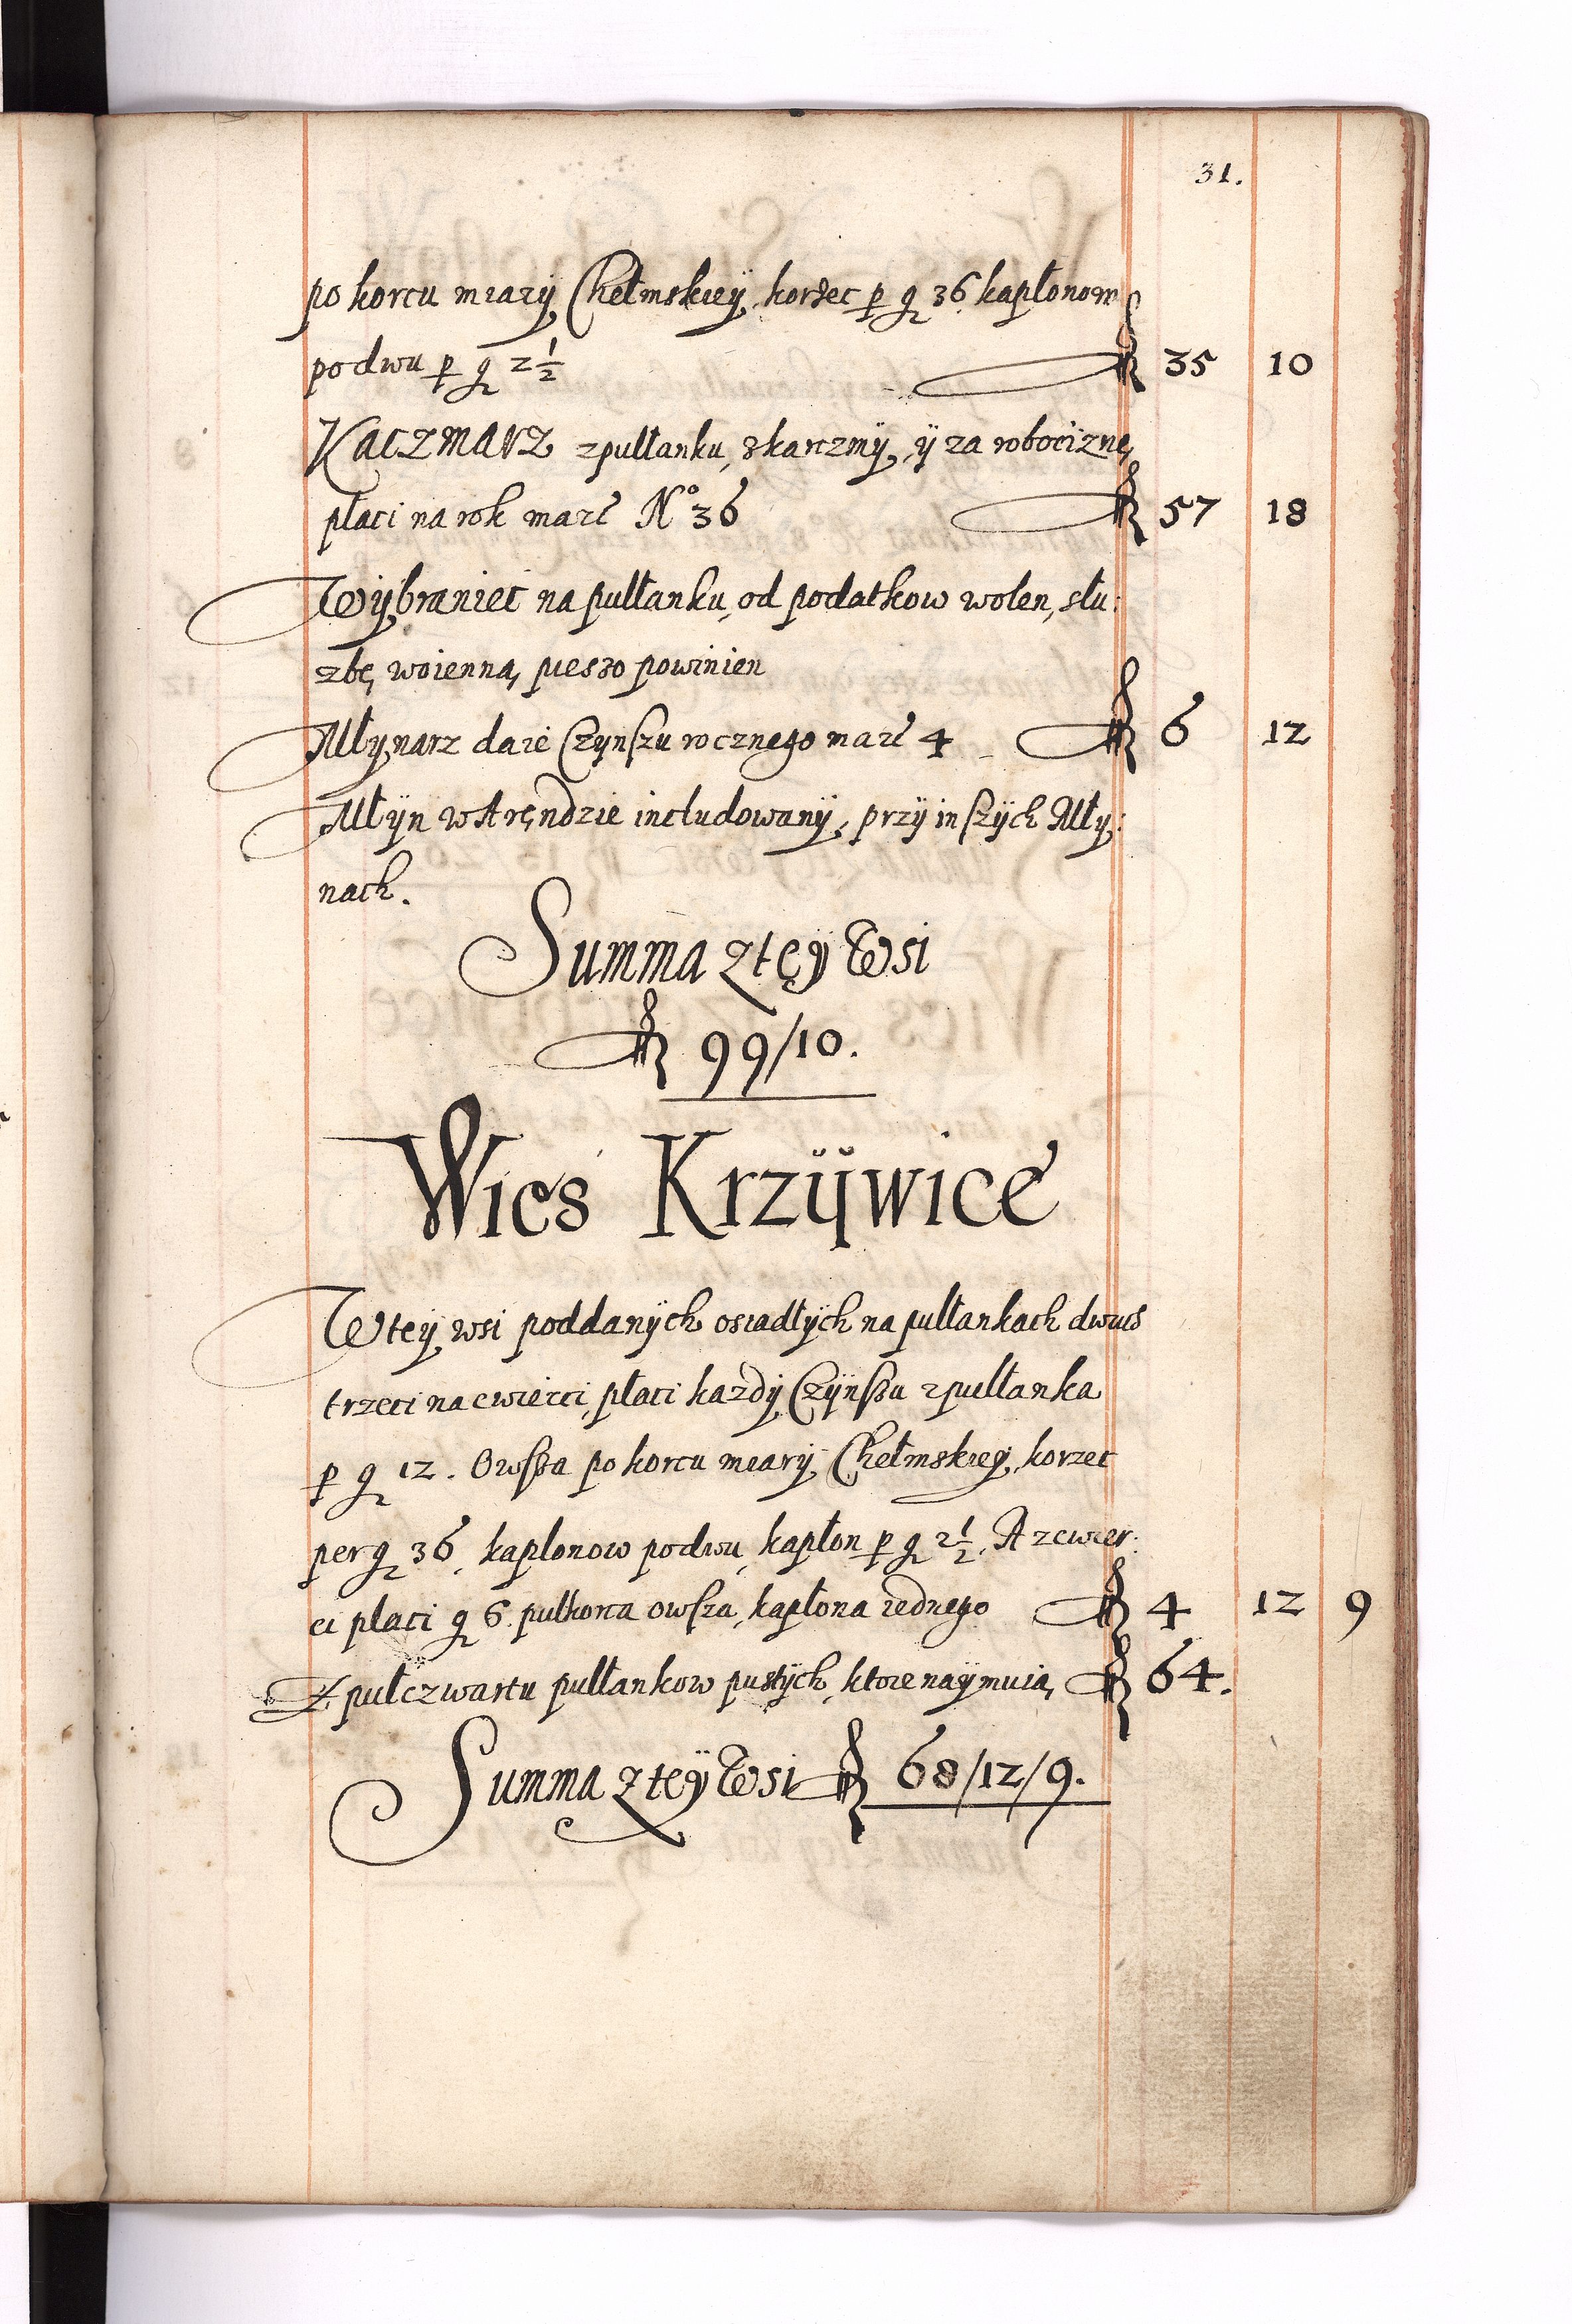 31.
po korcu miarÿ Chełmskieÿ, korzec p g 36 kapłonow
po dwu p g 2½ fl 35 10
Kaczmarz z pułłanku, z karczmÿ, ÿ za robociznę,
płaci na rok mare N° 36 fl 57 18
Wÿbraniec na pułłanku, od podatkow wolen, słu:
zbę woienną pieszo powinien
Młynarz daie Czynszu rocznego mare 4 fl 6 12
Młÿn w Aręndzie includowanÿ, przÿ inszÿch Mły:
nach.
Summa z tęÿ Wsi
fl 99/10.
Wies Krzÿwice
W teÿ wsi poddanÿch osiadłÿch na pułłankach dwuis
trzeci na cwierci, płaci kazdÿ Czÿnszu z pułłanka
p g 12. Owsza po korcu miarÿ Chełmskieÿ, korzec
per g 36, kaplonow po dwu, kapłon p g 2½. A z cwier:
ci placi g 6. pulkorca owsza, kapłona iednego fl 4 12 9
Z pułczwartu pułłankow pustÿch, ktore naÿmuią fl 64.
Summa z teÿ Wsi fl 68/12/9.